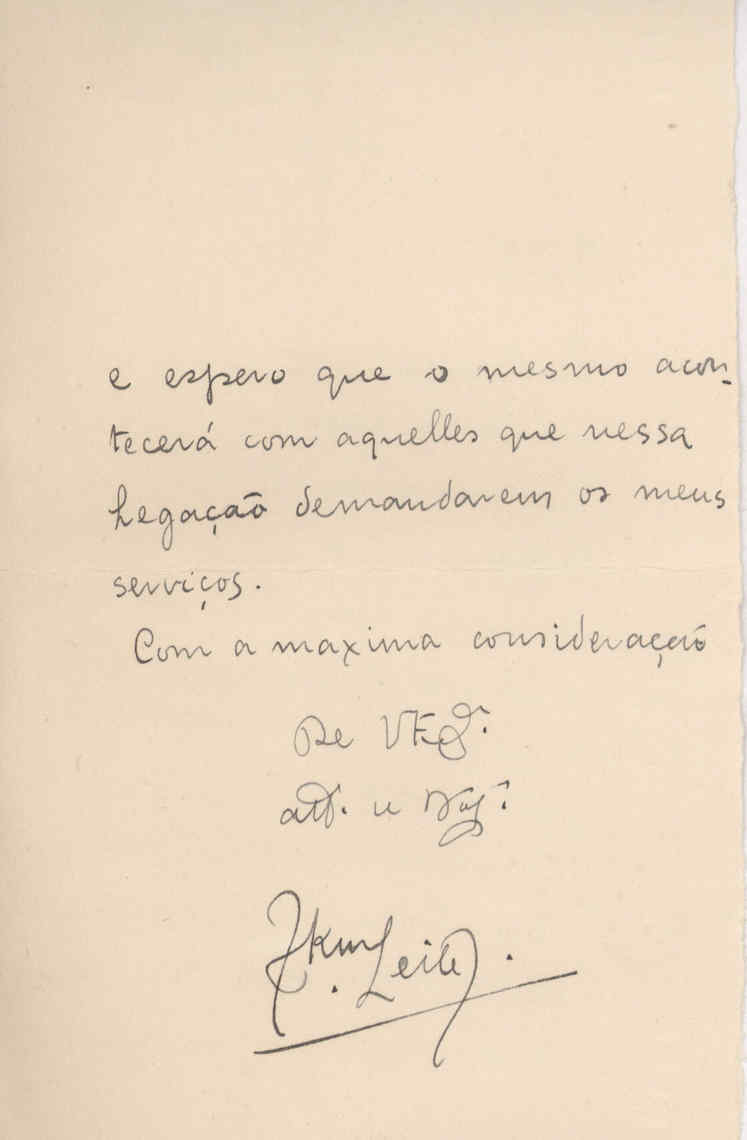 e espero que o mesmo acon-
tecerá com aquelles que nessa
Legação demandarem os meus
serviços.
Com a maxima consideração
De V Exª.
attº. e
Leite